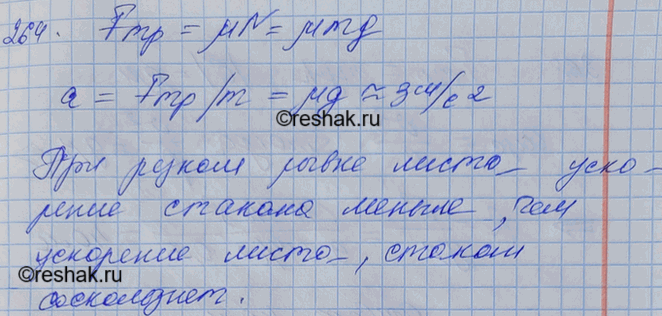 264. Fтр = μN = μmg
a = Fтр/m = μg ≈ 3 м/с2
©reshak.ru
При резком рывке листа уско-
рение стакана меньше, чем
ускорение листа, стакан
©reshak.ru
соскользнет.